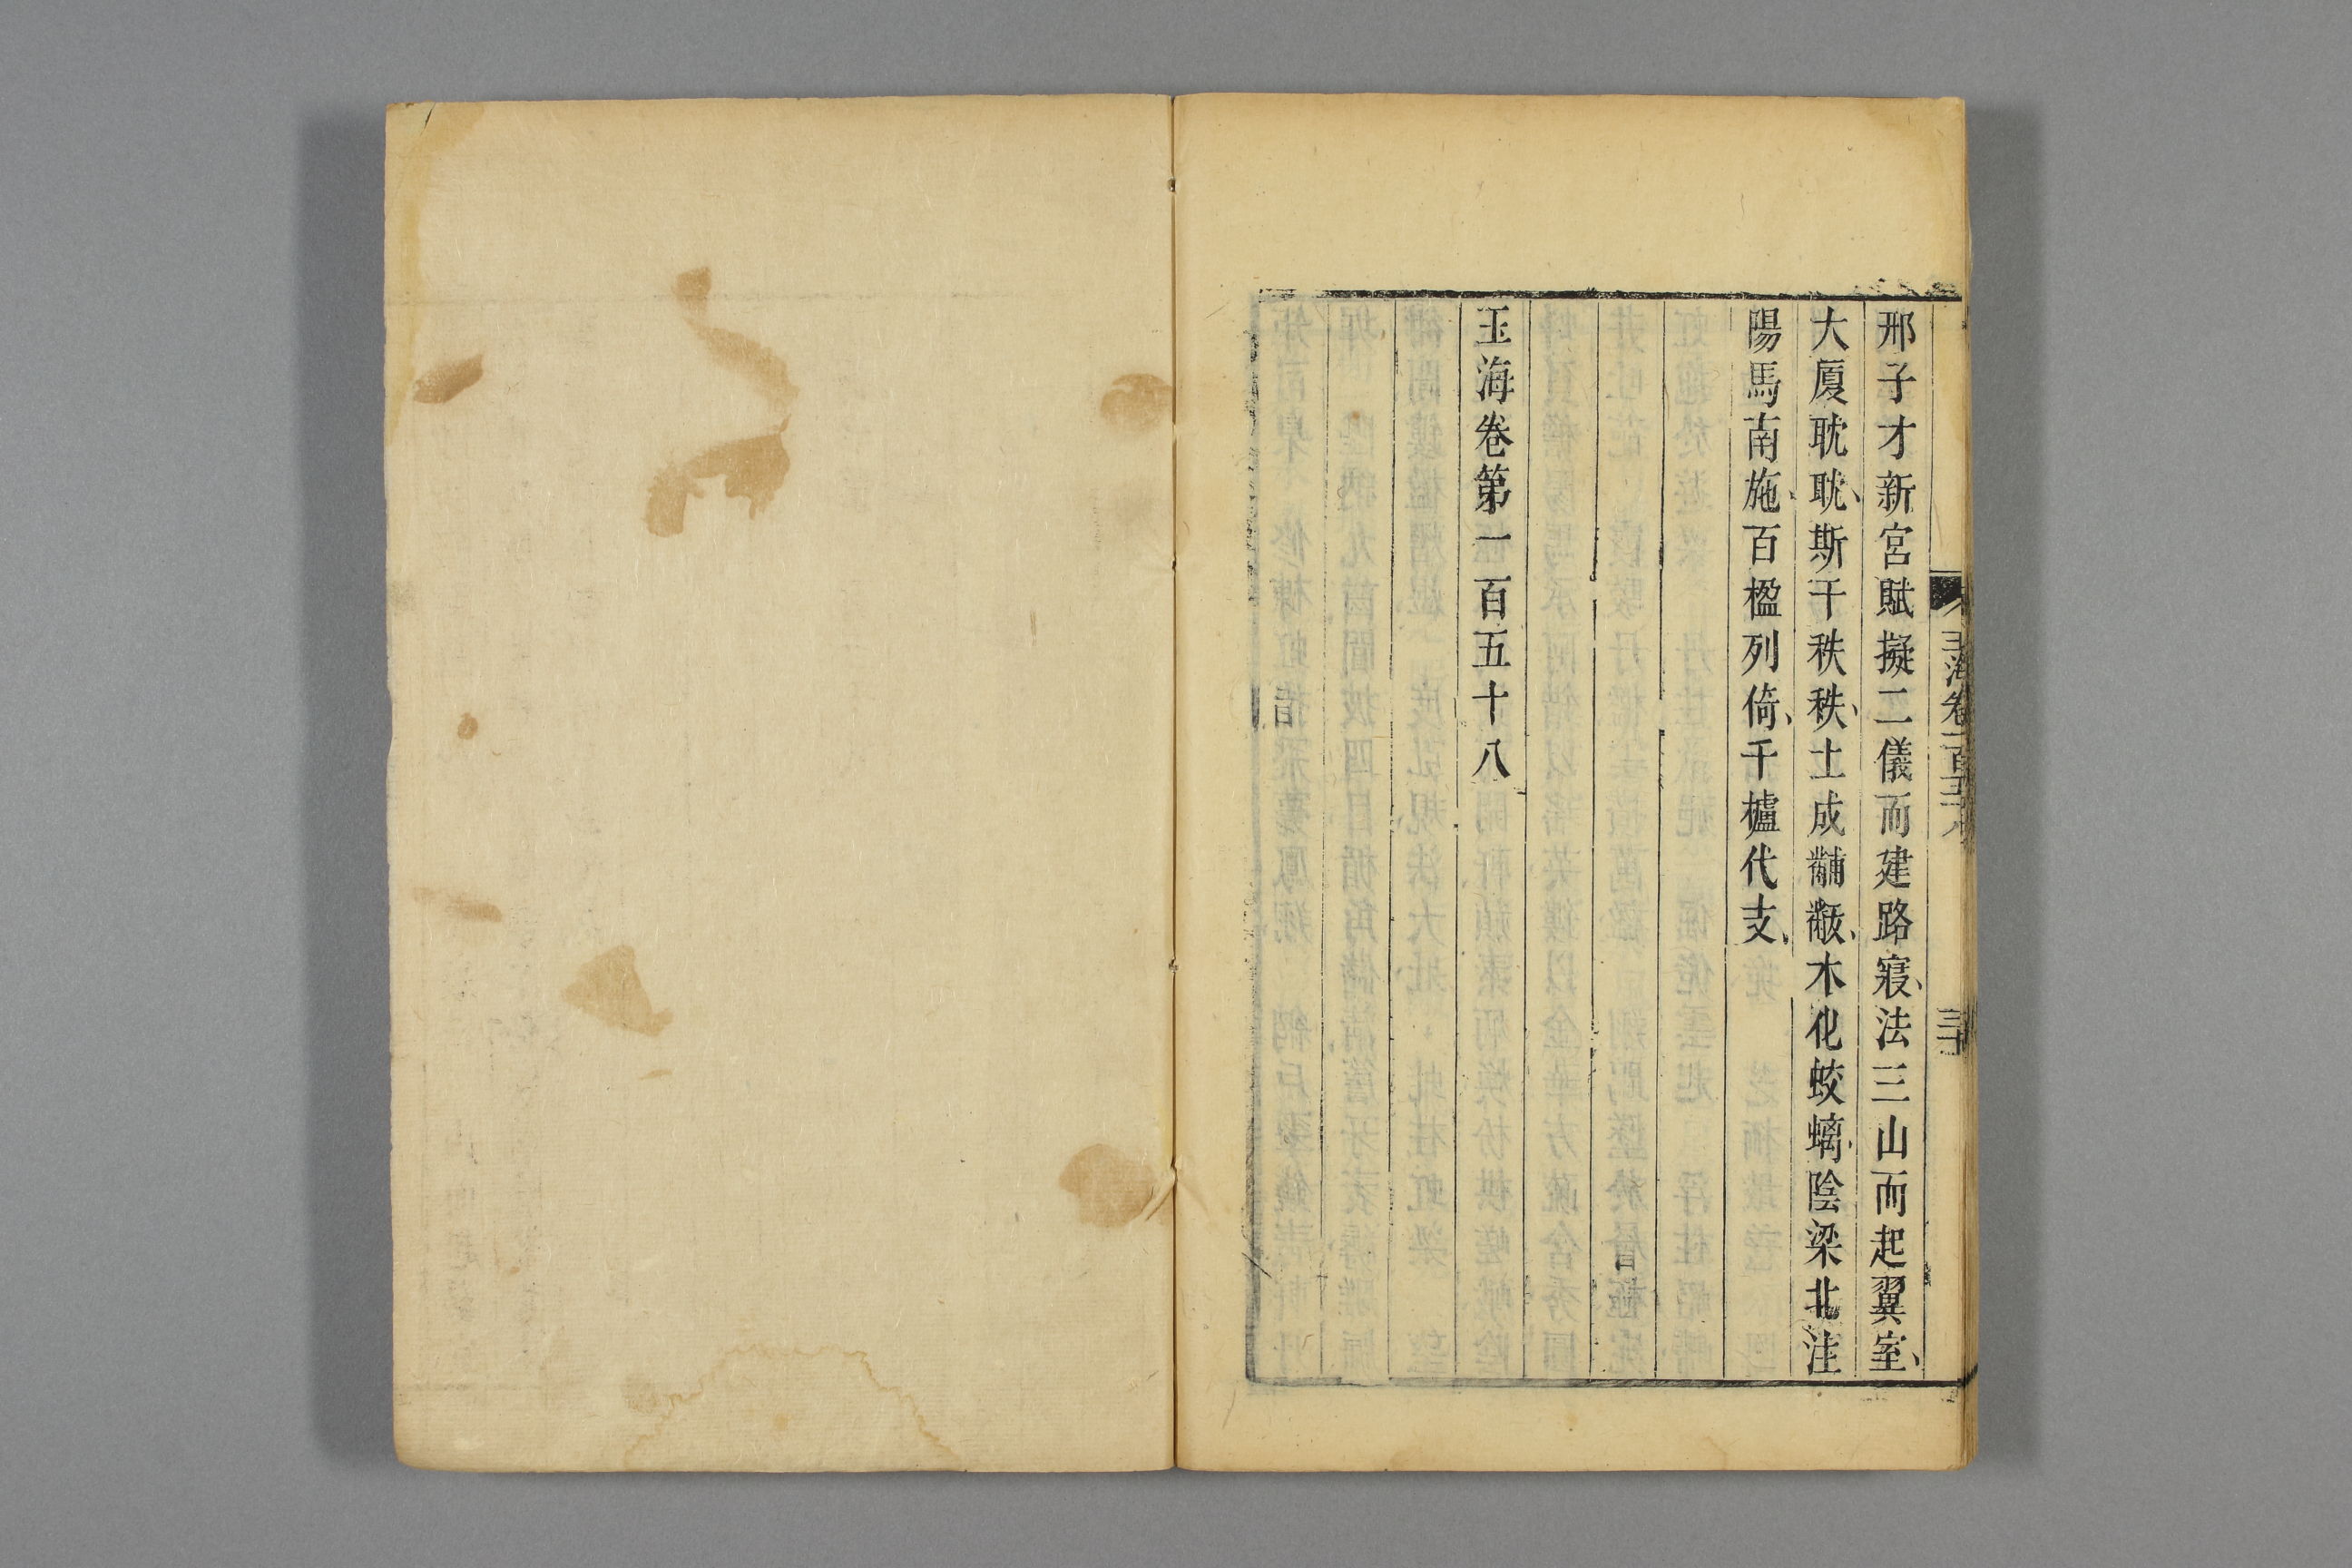 邢子才新宮賦擬二儀而建路寢、法三山而起翼室、
大厦耽耽、斯干秩秩、土成黼黻、木化蛟螭、陰梁北注
陽馬南施、百楹列倚、千櫨代支、
玉海卷第一百五十八
玉海卷一百五十八
三十